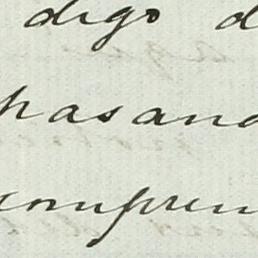 digo d
pasand
compren